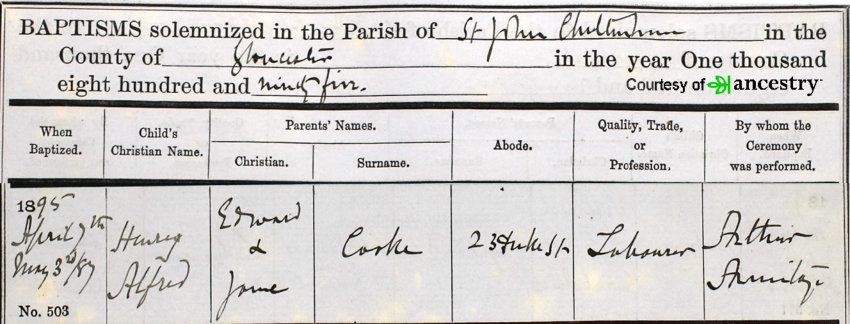 BAPTISMS solemnized in the Parish of St John Cheltenham in the
County of Gloucester in the year One thousand
eight hundred and ninety five.
Courtesy of ancestry
When Baptized.
Child's Christian Name.
Parents' Names.
Christian.
Surname.
Abode.
Quality, Trade, or Profession.
By whom the Ceremony was performed.
1895
April 7th
May 3rd/87
No. 503
Henry
Alfred
Edward
&
Jane
Cooke
23 Duke St
Labourer
Arthur
Armitage